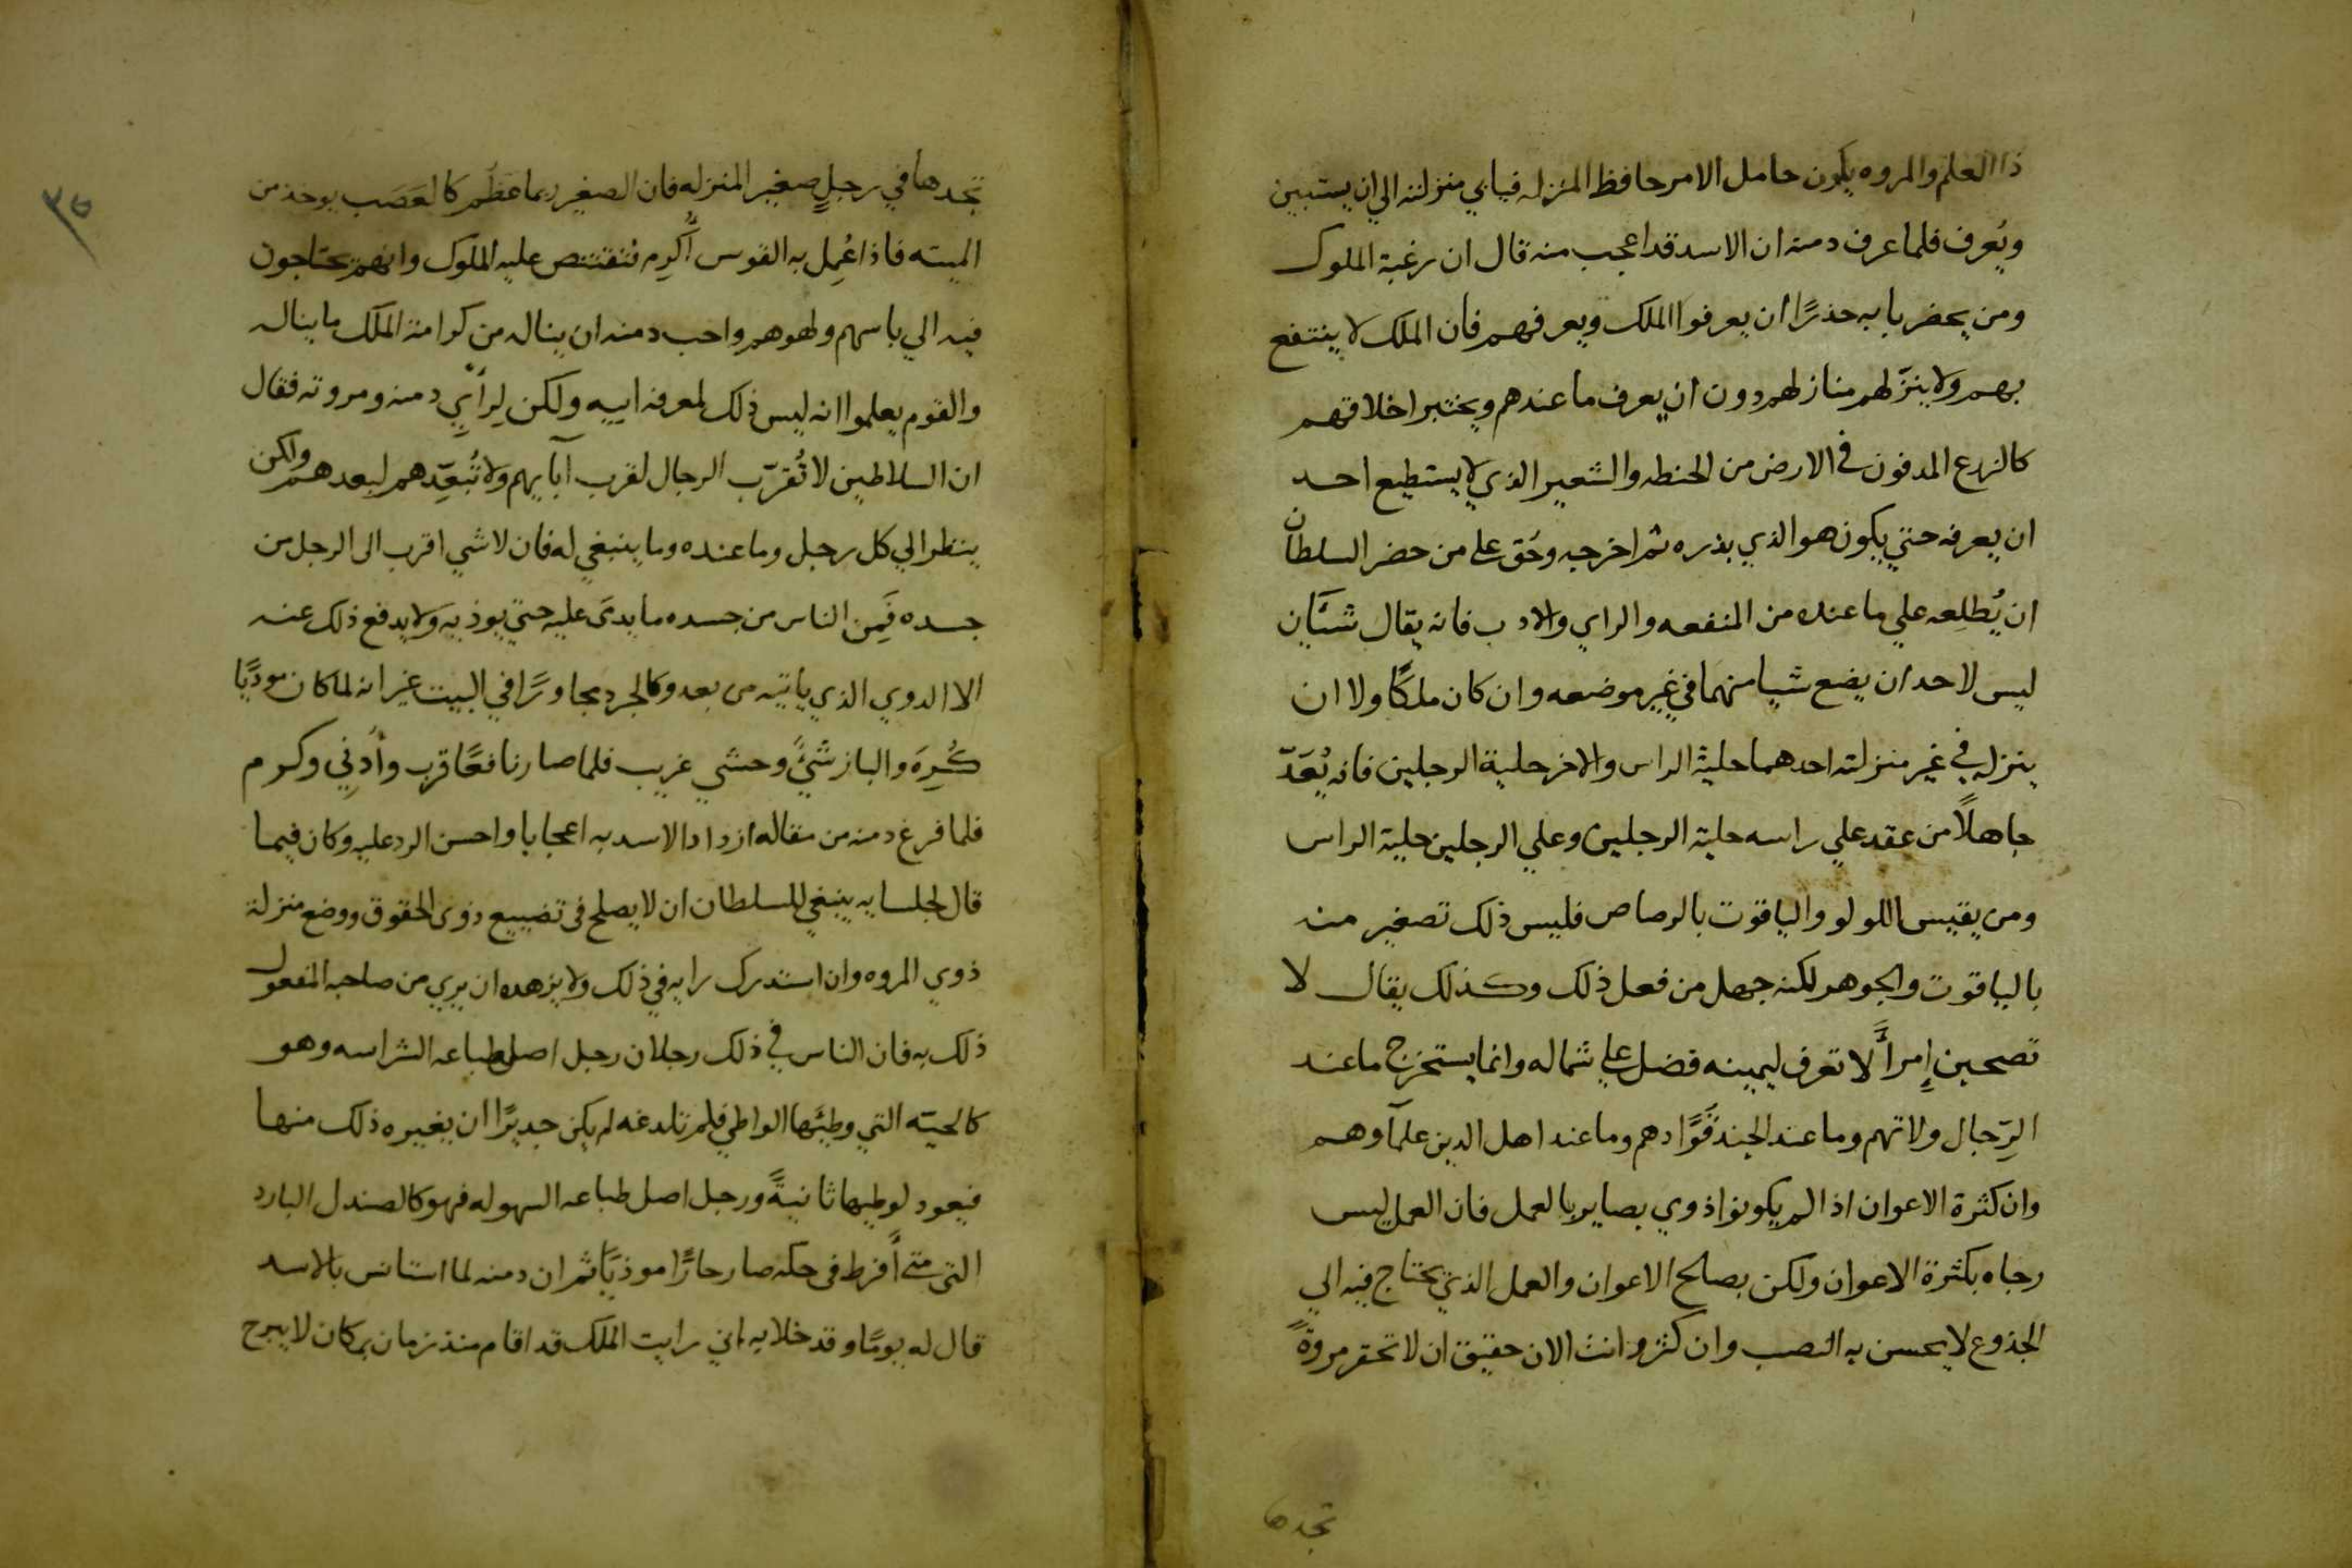 ذا العلم والمروه يكون حامل الامر حافظ المنزله فيابي منزلته الي ان يستبين
ويُعرف فلما عرف دمنه ان الاسد قد اعجب منه قال ان رغبة الملوك
ومن يحضر بابه حذرًا ان يعرفوا الملك ويعرفهم فان الملك لا ينتفع
بهم ولا ينزّلهم منازلهم دون ان يعرف ما عندهم ويختبر اخلاقهم
كالزرع المدفون في الارض من الحنطه والشعير الذي لا يستطيع احد
ان يعرفه حتي يكون هو الذي بذره ثم اخرجه وحُق علي من حضر السلطان
ان يُطلِعه علي ما عنده من المنفعه والراي والادب فانه يقال شيّان
ليس لاحد ان يضع شيا منهما في غير موضعه وان كان ملكًا ولا ان
ينزله في غير منزلته احدهما حلية الراس والاخر حلية الرجلين فانه يُعَدّ
جاهلًا من عقد علي راسه حلية الرجلين وعلي الرجلين حلية الراس
ومن يقيس اللولو والياقوت بالرصاص فليس ذلك تصغير منه
بالياقوت والجوهر لكنه جهل من فعل ذلك وكذلك يقال لا
تصحبن إمرأً لا تعرف ليمينه فضل علي شماله وانما يستخرج ما عند
الرِّجال ولاتهم وما عند الجند قوّادهم وما عند اهل الدين علمآوهم
وان كثرة الاعوان اذا لم يكونوا ذوي بصاير بالعمل فان العمل ليس
رجاه بكثرة الاعوان ولكن بصلح الاعوان والعمل الذي يحتاج فيه الي
الجذوع لا يحسن به القصب وان كثر وانت الان حقيق ان لا تحقر مروةً
تجدها
٣٥
تجدها في رجلٍ صغير المنزله فان الصغير ربما عظم كالعَصَب يوخذ من
الميته فاذا عُمِل به القوس أُكرِم فتقتنص عليه الملوك وانهم يحتاجون
فيه الي باسهم ولهوهم واحب دمنه ان ينال من كرامة الملك ما ينال
والقوم يعلموا انه ليس ذلك لمعرفة ابيه ولكن لِرأيِ دمنه ومروته فقال
ان السلاطين لا تُقرّب الرجال لقرب آبايهم ولا تُبعّدهم لبعدهم ولكن
ينظر الي كل رجل وما عنده وما ينبغي له فان لا شي اقرب الى الرجل من
جسده فَمِن الناس من جسده ما يدىَ عليه حتي يوذيه ولا يدفع ذلك عنه
الا الدوي الذي ياتيه من بعد وكالجرد مجاورًا في البيت غير انه لما كان موذيًا
كُرِهَ والباز شَيئًٌ وحشي غريب فلما صار نافعًا قرب وأُدنِي وكرم
فلما فرغ دمنه من مقاله ازداد الاسد به اعجابا واحسن الرد عليه وكان فيما
قال لجلسايه ينبغي للسلطان ان لا يصلح فى تضييع ذوى الحقوق ووضع منزلة
ذوي المروه وان استدرك رايه في ذلك ولا يزهده ان يري من صاحبه المفعول
ذلك به فان الناس في ذلك رجلان رجل اصل طباعه الشراسه وهو
كالحيته التي وطيَها الواطي فلم تلدغه لم يكن جديرًا ان يغيره ذلك منها
فيعود لوطيها ثانيةً ورجل اصل طباعه السهوله فهو كالصندل البارد
التي متي أَفرط فى حكه صار حارًا موذيًا ثم ان دمنه لما استانس بالاسد
قال له يومًا وقد خلا به اني رايت الملك قد اقام منذ زمان بمكان لا يبرح